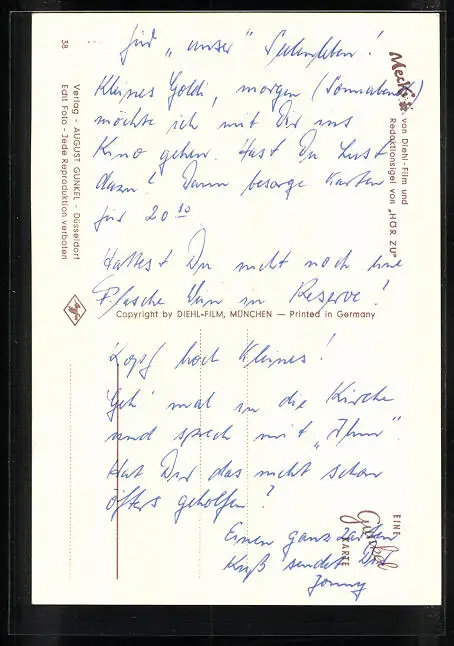 für „unser" Seelenleben!
Kleines Goldi, morgen (Sonnabend)
möchte ich mit Dir ins
Kino gehen. Hast Du Lust
dazu? Dann besorge Karten
für 20 10
Hattest Du nicht noch eine
Flasche Wein in Reserve?
Kopf hoch Kleines!
Geh' mal in die Kirche
und sprech mit „Ihm".
Hat Dir das nicht schon
öfters geholfen?
Einen ganz zarten
Kuß sendet Dir
Jonny
Mecki
von Diehl-Film und
Redaktionsigel von „HÖR ZU"
38
Verlag - AUGUST GUNKEL - Düsseldorf
Edit Foto - Jede Reproduktion verboten
Copyright by DIEHL-FILM, MÜNCHEN — Printed in Germany
EINE
Gunkel
KARTE